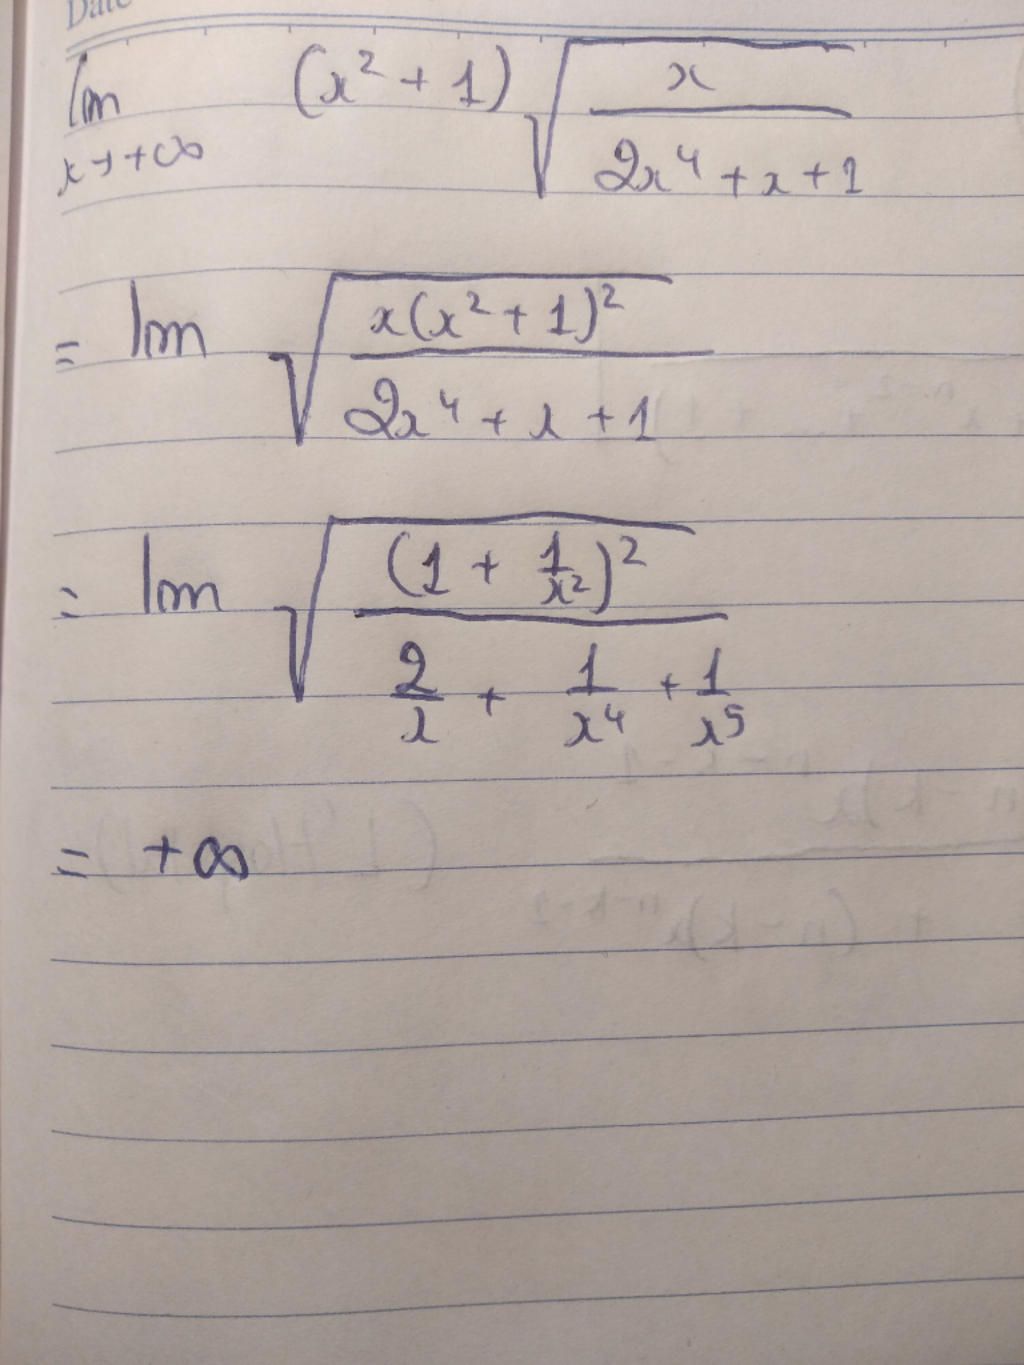 Date
lim x→+∞ (x² + 1) √(x / (2x⁴ + x + 1))
= lim √(x(x² + 1)² / (2x⁴ + x + 1))
= lim √((1 + 1/x²)² / (2/x + 1/x⁴ + 1/x⁵))
= +∞